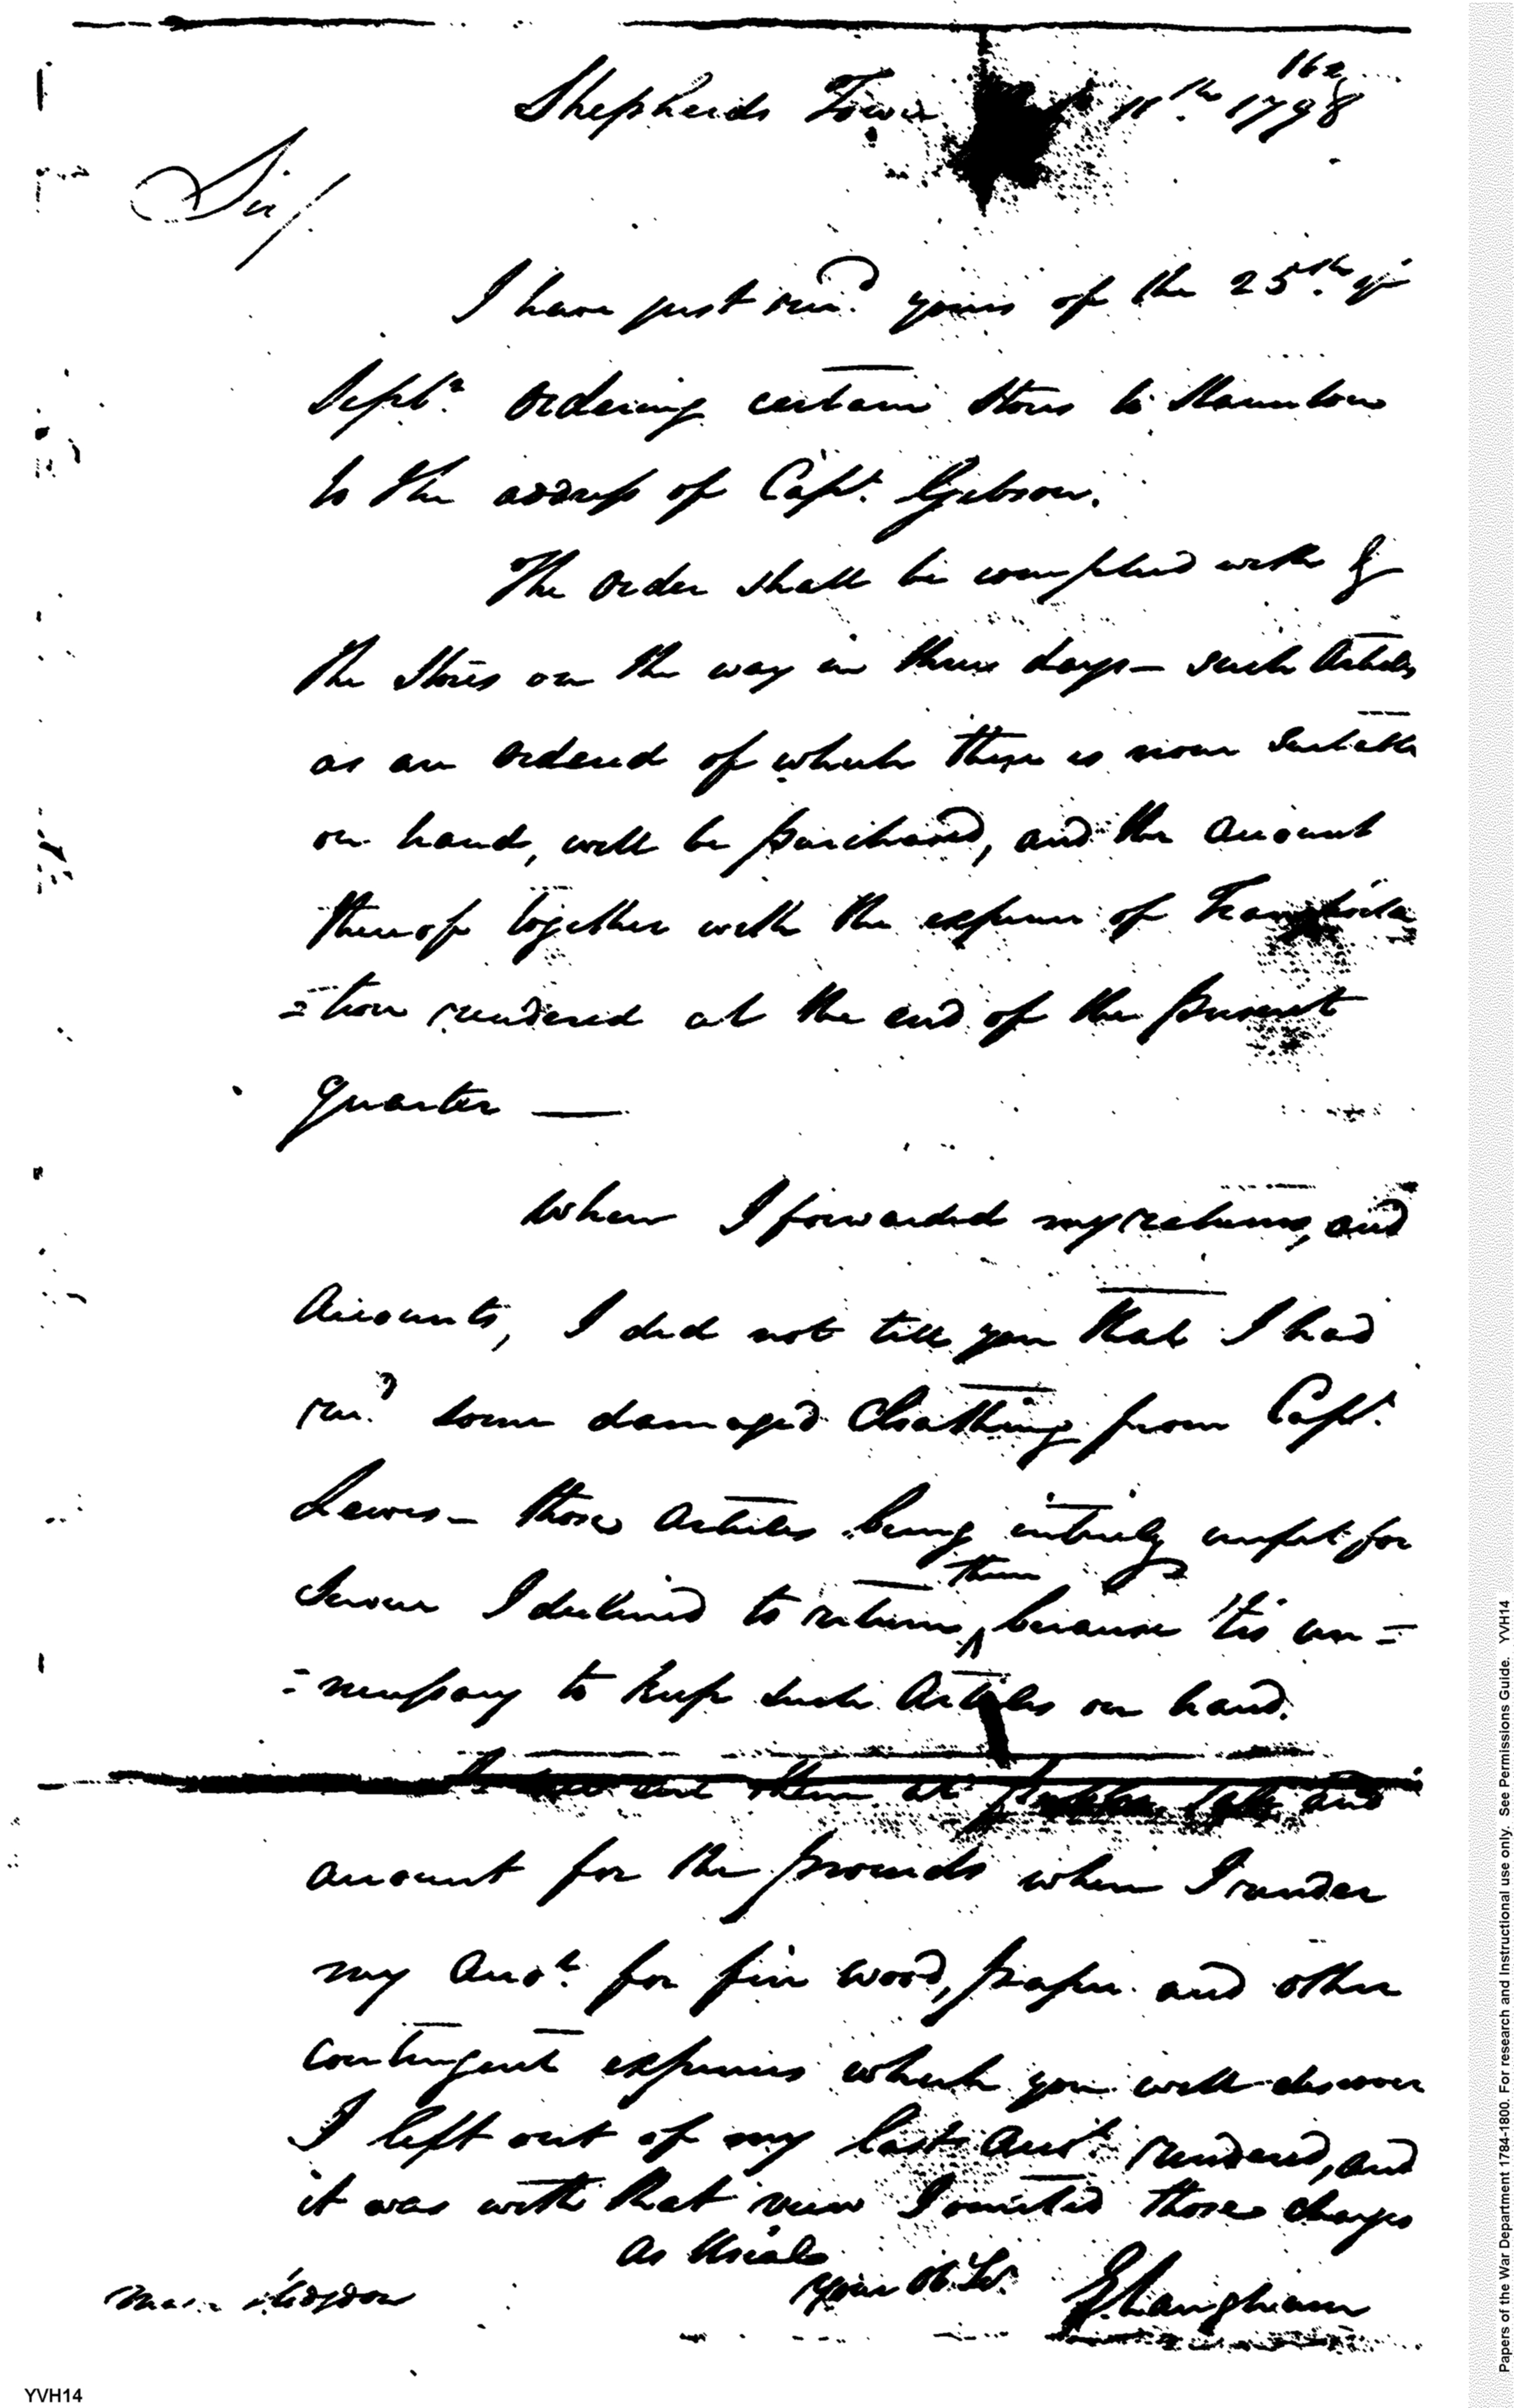 162
Shepherds Town 11th 1798
Sir/
I have just recd. yours of the 25th of
Septr. ordering certain Stores to Staunton
to the address of Capt. Gibson.
The order shall be complied with &
the Stores on the way in three days — such Articles
as are ordered of which there is none Suitable
on hand, will be purchased, and the account
thereof together with the expense of Transporta
=tion rendered at the end of the present
quarter —
When I forwarded my returns, and
Accounts, I did not tell you that I had
recd. some damaged Cloathing from Capt.
Lewis — those Articles being intirely unfit for
Service I declined to return them, because 'tis un=
=necessary to keep such Articles on hand.
them at and
account for the proceeds when I render
my Accot. for fire wood, paper and other
contingent expenses which you will discover
I left out of my last Acct. rendered, and
it was with that view I omitted those charges
As Usual
your Ob Sr.
Hodgdon
YVH14
Papers of the War Department 1784-1800. For research and Instructional use only. See Permissions Guide. YVH14